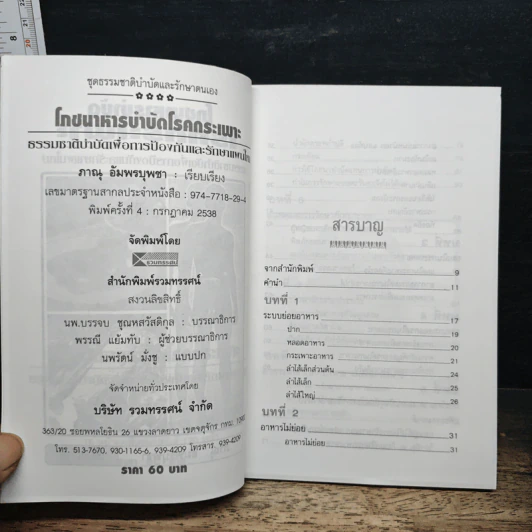 ชุดธรรมชาติบำบัดและรักษาตนเอง
โภชนาหารบำบัดโรคกระเพาะ
ธรรมชาติบำบัดเพื่อการป้องกันและรักษาแผนใหม่
ภาณุ อัมพรบุพชา : เรียบเรียง
เลขมาตรฐานสากลประจำหนังสือ : 974-7718-29-4
พิมพ์ครั้งที่ 4 : กรกฎาคม 2538
จัดพิมพ์โดย
รวมทรรศน์
สำนักพิมพ์รวมทรรศน์
สงวนลิขสิทธิ์
นพ.บรรจบ ชุณหสวัสดิกุล : บรรณาธิการ
พรรณี แย้มทับ : ผู้ช่วยบรรณาธิการ
นพรัตน์ มั่งชู : แบบปก
จัดจำหน่ายทั่วประเทศโดย
บริษัท รวมทรรศน์ จำกัด
363/20 ซอยพหลโยธิน 26 แขวงลาดยาว เขตจตุจักร กทม. 10900
โทร. 513-7670, 930-1165-6, 939-4209 โทรสาร. 939-4209
ราคา 60 บาท
สารบาญ
จากสำนักพิมพ์ 9
คำนำ 11
บทที่ 1
ระบบย่อยอาหาร 17
ปาก 19
หลอดอาหาร 20
กระเพาะอาหาร 21
ลำไส้เล็กส่วนต้น 24
ลำไส้เล็ก 25
ลำไส้ใหญ่ 26
บทที่ 2
อาหารไม่ย่อย 31
อาหารไม่ย่อย 31